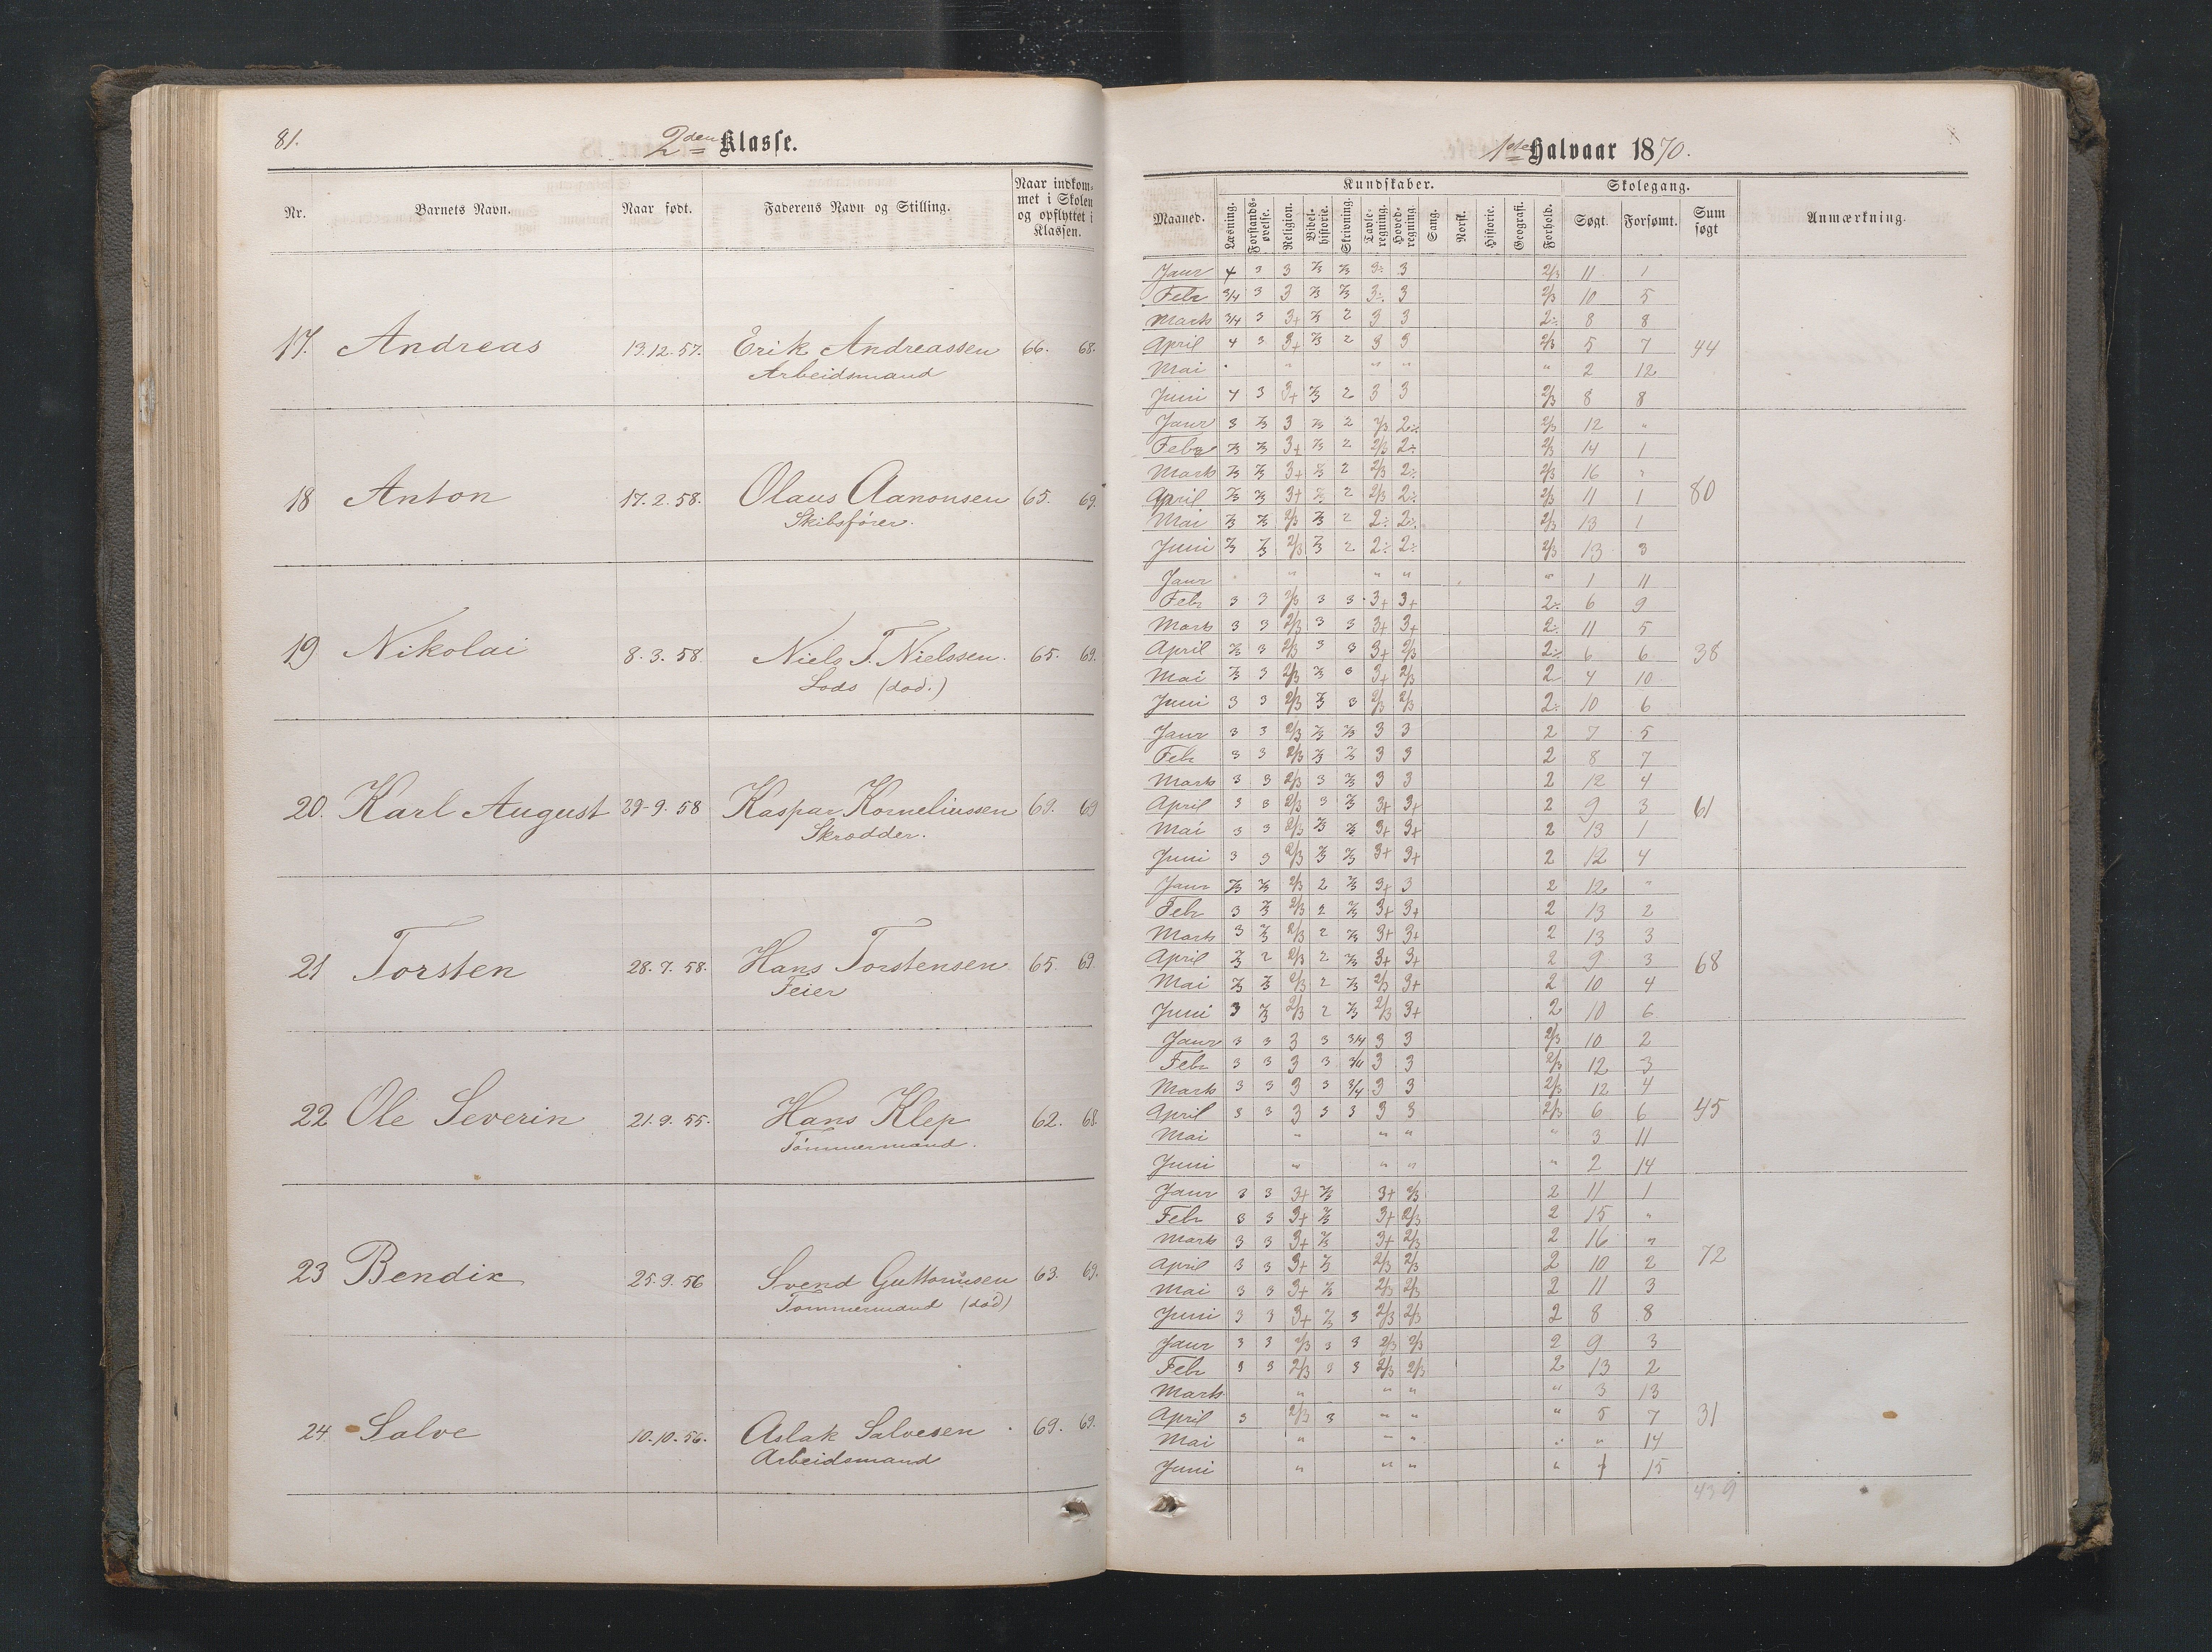 81.
2den Klasse.
Nr. Barnets Navn. Naar født. Faderens Navn og Stilling. Naar indkommet i Skolen og opflyttet i Klassen.
17. Andreas 13.12.57. Erik Andreassen 66. 68.
Arbeidsmand
18 Anton 17.2.58. Olaus Aanonsen 65. 69.
Skibsfører.
19 Nikolai 8.3.58. Niels T. Nielssen. 65. 69.
Lods (død.)
20. Karl August 9.58 Kaspar Korneliussen 69. 69
Skrædder.
21 Torsten 28.7.58. Hans Torstensen 65. 69.
Feier
22 Ole Severin 21.9.55. Hans Klep 62. 68.
Tømmermand.
23 Bendix 25.9.56 Svend Guttormsen 63. 69.
Tømmermand (død)
24 Salve 10.10.56. Aslak Salvesen 69. 69.
Arbeidsmand
1ste Halvaar 1870.
Kundskaber. Skolegang.
Maaned. Læsning. Forstands-øvelse. Religion. Bibel-historie. Skrivning. Tavle-regning. Hoved-regning. Sang. Norsk. Historie. Geografi. Forhold. Søgt. Forsømt. Sum søgt Anmærkning.
Janr 4 3 3 2/3 2/3 3÷ 3 2/3 11 1
Febr 3/4 3 3 2/3 2/3 3÷ 3 2/3 10 5
Marts 3/4 3 3+ 2/3 2 3 3 2÷ 8 8
April 4 3 3+ 2/3 2 3 3 2/3 5 7 44
Mai " " " " 2 12
Juni 4 3 3+ 2/3 2 3 3 2/3 8 8
Janr 3 2/3 3 2/3 2 2/3 2÷ 2/3 12 "
Febr 2/3 2/3 3+ 2/3 2 2/3 2÷ 2/3 14 1
Marts 2/3 2/3 3+ 2/3 2 2/3 2÷ 2/3 16 "
April 2/3 2/3 3+ 2/3 2 2/3 2÷ 2/3 11 1 80
Mai 2/3 2/3 2/3 2/3 2 2÷ 2÷ 2/3 13 1
Juni 2/3 2/3 2/3 2/3 2 2÷ 2÷ 2/3 13 3
Janr " " " " 1 11
Febr 3 3 2/3 3 3 3+ 3+ 2÷ 6 9
Marts 3 3 2/3 3 3 3+ 3+ 2÷ 11 5
April 2/3 3 2/3 3 3 3+ 2/3 2÷ 6 6 38
Mai 2/3 3 2/3 2/3 3 3+ 2/3 2 4 10
Juni 3 3 2/3 2/3 3 2/3 2/3 2÷ 10 6
Janr 3 3 2/3 2/3 2/3 3 3 2 7 5
Feb 3 3 2/3 2/3 2/3 3 3 2 8 7
Marts 3 3 2/3 3 2/3 3 3 2 12 4
April 3 3 2/3 3 2/3 3+ 3+ 2 9 3 61
Mai 3 3 2/3 2/3 2/3 3+ 3+ 2 13 1
Juni 3 3 2/3 2/3 2/3 3+ 3+ 2 12 4
Janr 2/3 2/3 2/3 2 2/3 3+ 3 2 12 "
Febr 3 2/3 2/3 2 2/3 3+ 3+ 2 13 2
Marts 3 2/3 2/3 2 2/3 3+ 3+ 2 13 3
April 2/3 2 2/3 2 2/3 3+ 3+ 2 9 3 68
Mai 2/3 2/3 2/3 2 2/3 2/3 3+ 2 10 4
Juni 3 2/3 2/3 2 2/3 2/3 3+ 2 10 6
Janr 3 3 3 3 3/4 3 3 2/3 10 2
Febr 3 3 3 3 3/4 3 3 2/3 12 3
Marts 3 3 3 3 3/4 3 3 2/3 12 4
April 3 3 3 3 3 3 3 2/3 6 6 45
Mai " " " " 3 11
Juni " " " " 2 14
Janr 3 3 3+ 2/3 3+ 2/3 2 11 1
Febr 3 3 3+ 2/3 3+ 2/3 2 15 "
Marts 3 3 3+ 2/3 3+ 2/3 2 16 "
April 3 3 3+ 2/3 2/3 2/3 2 10 2 72
Mai 3 3 3+ 2/3 2/3 2/3 2 11 3
Juni 3 3 3+ 2/3 3 2/3 2/3 2 8 8
Janr 3 3 2/3 3 3 2/3 2/3 2 9 3
Febr 3 3 2/3 3 3 2/3 2/3 2 13 2
Marts " " " " 3 13
April 3 2/3 3 " " " 5 7 31
Mai " " " " " 14
Juni " " " " 1 15
439